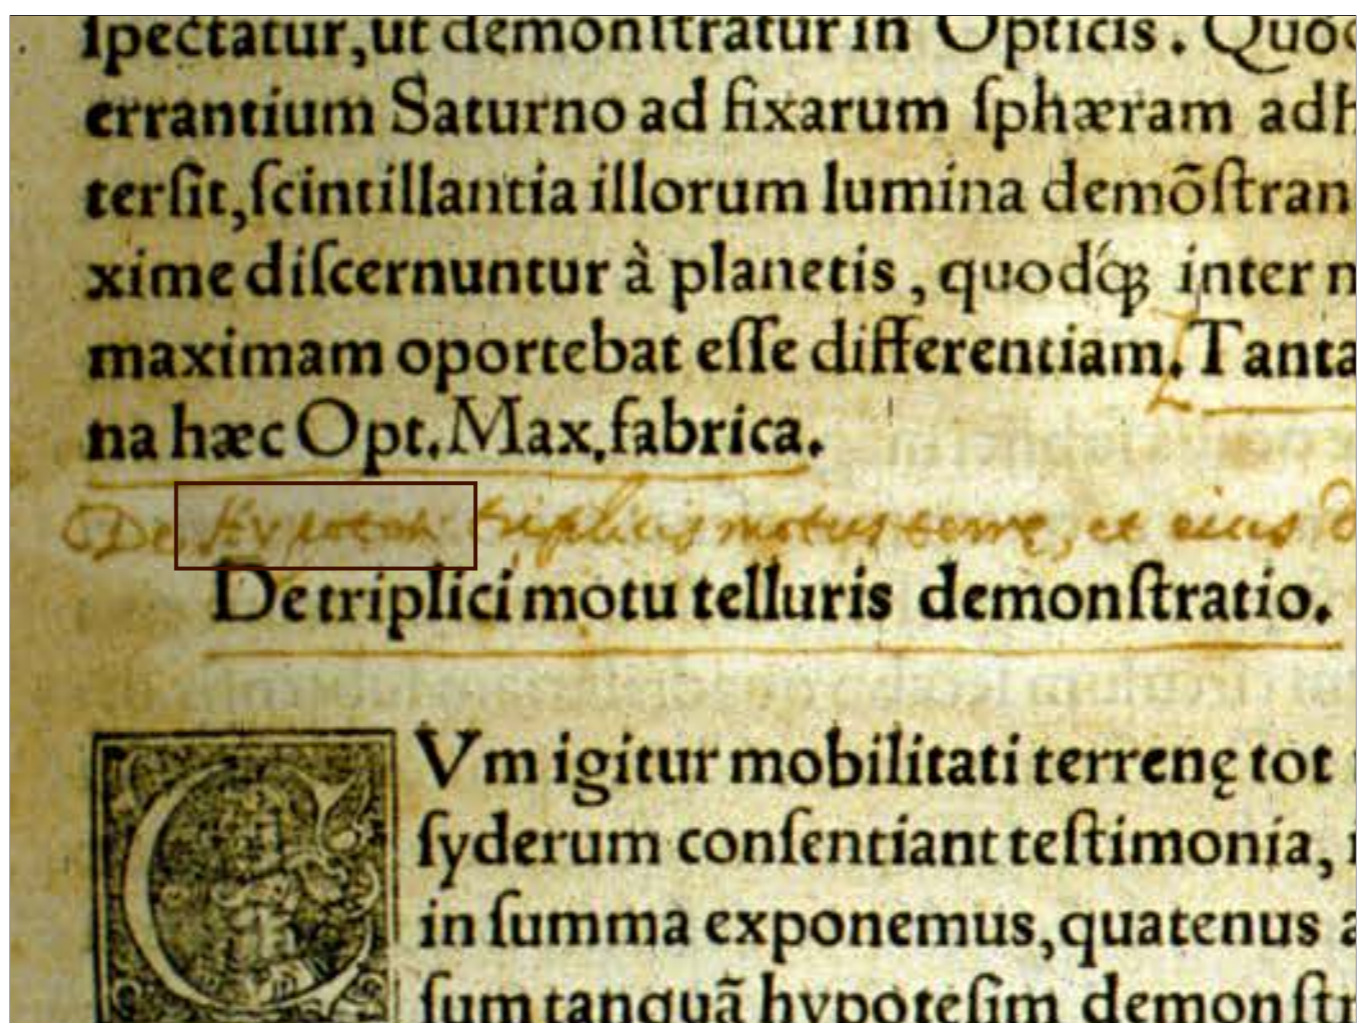 ſpectatur,ut demonſtratur in Opticis. Quod
errantium Saturno ad fixarum ſphæram adh
terſit,ſcintillantia illorum lumina demõſtran
xime diſcernuntur à planetis, quodq́ꝫ inter m
maximam oportebat eſſe differentiam. Tanta
na hæc Opt.Max.fabrica.
De Hypothesi triplicis motus terrę, et eius
De triplici motu telluris demonſtratio.
CVm igitur mobilitati terrenę tot
ſyderum conſentiant teſtimonia,
in ſumma exponemus,quatenus a
ſum tanquã hypoteſim demonſtr